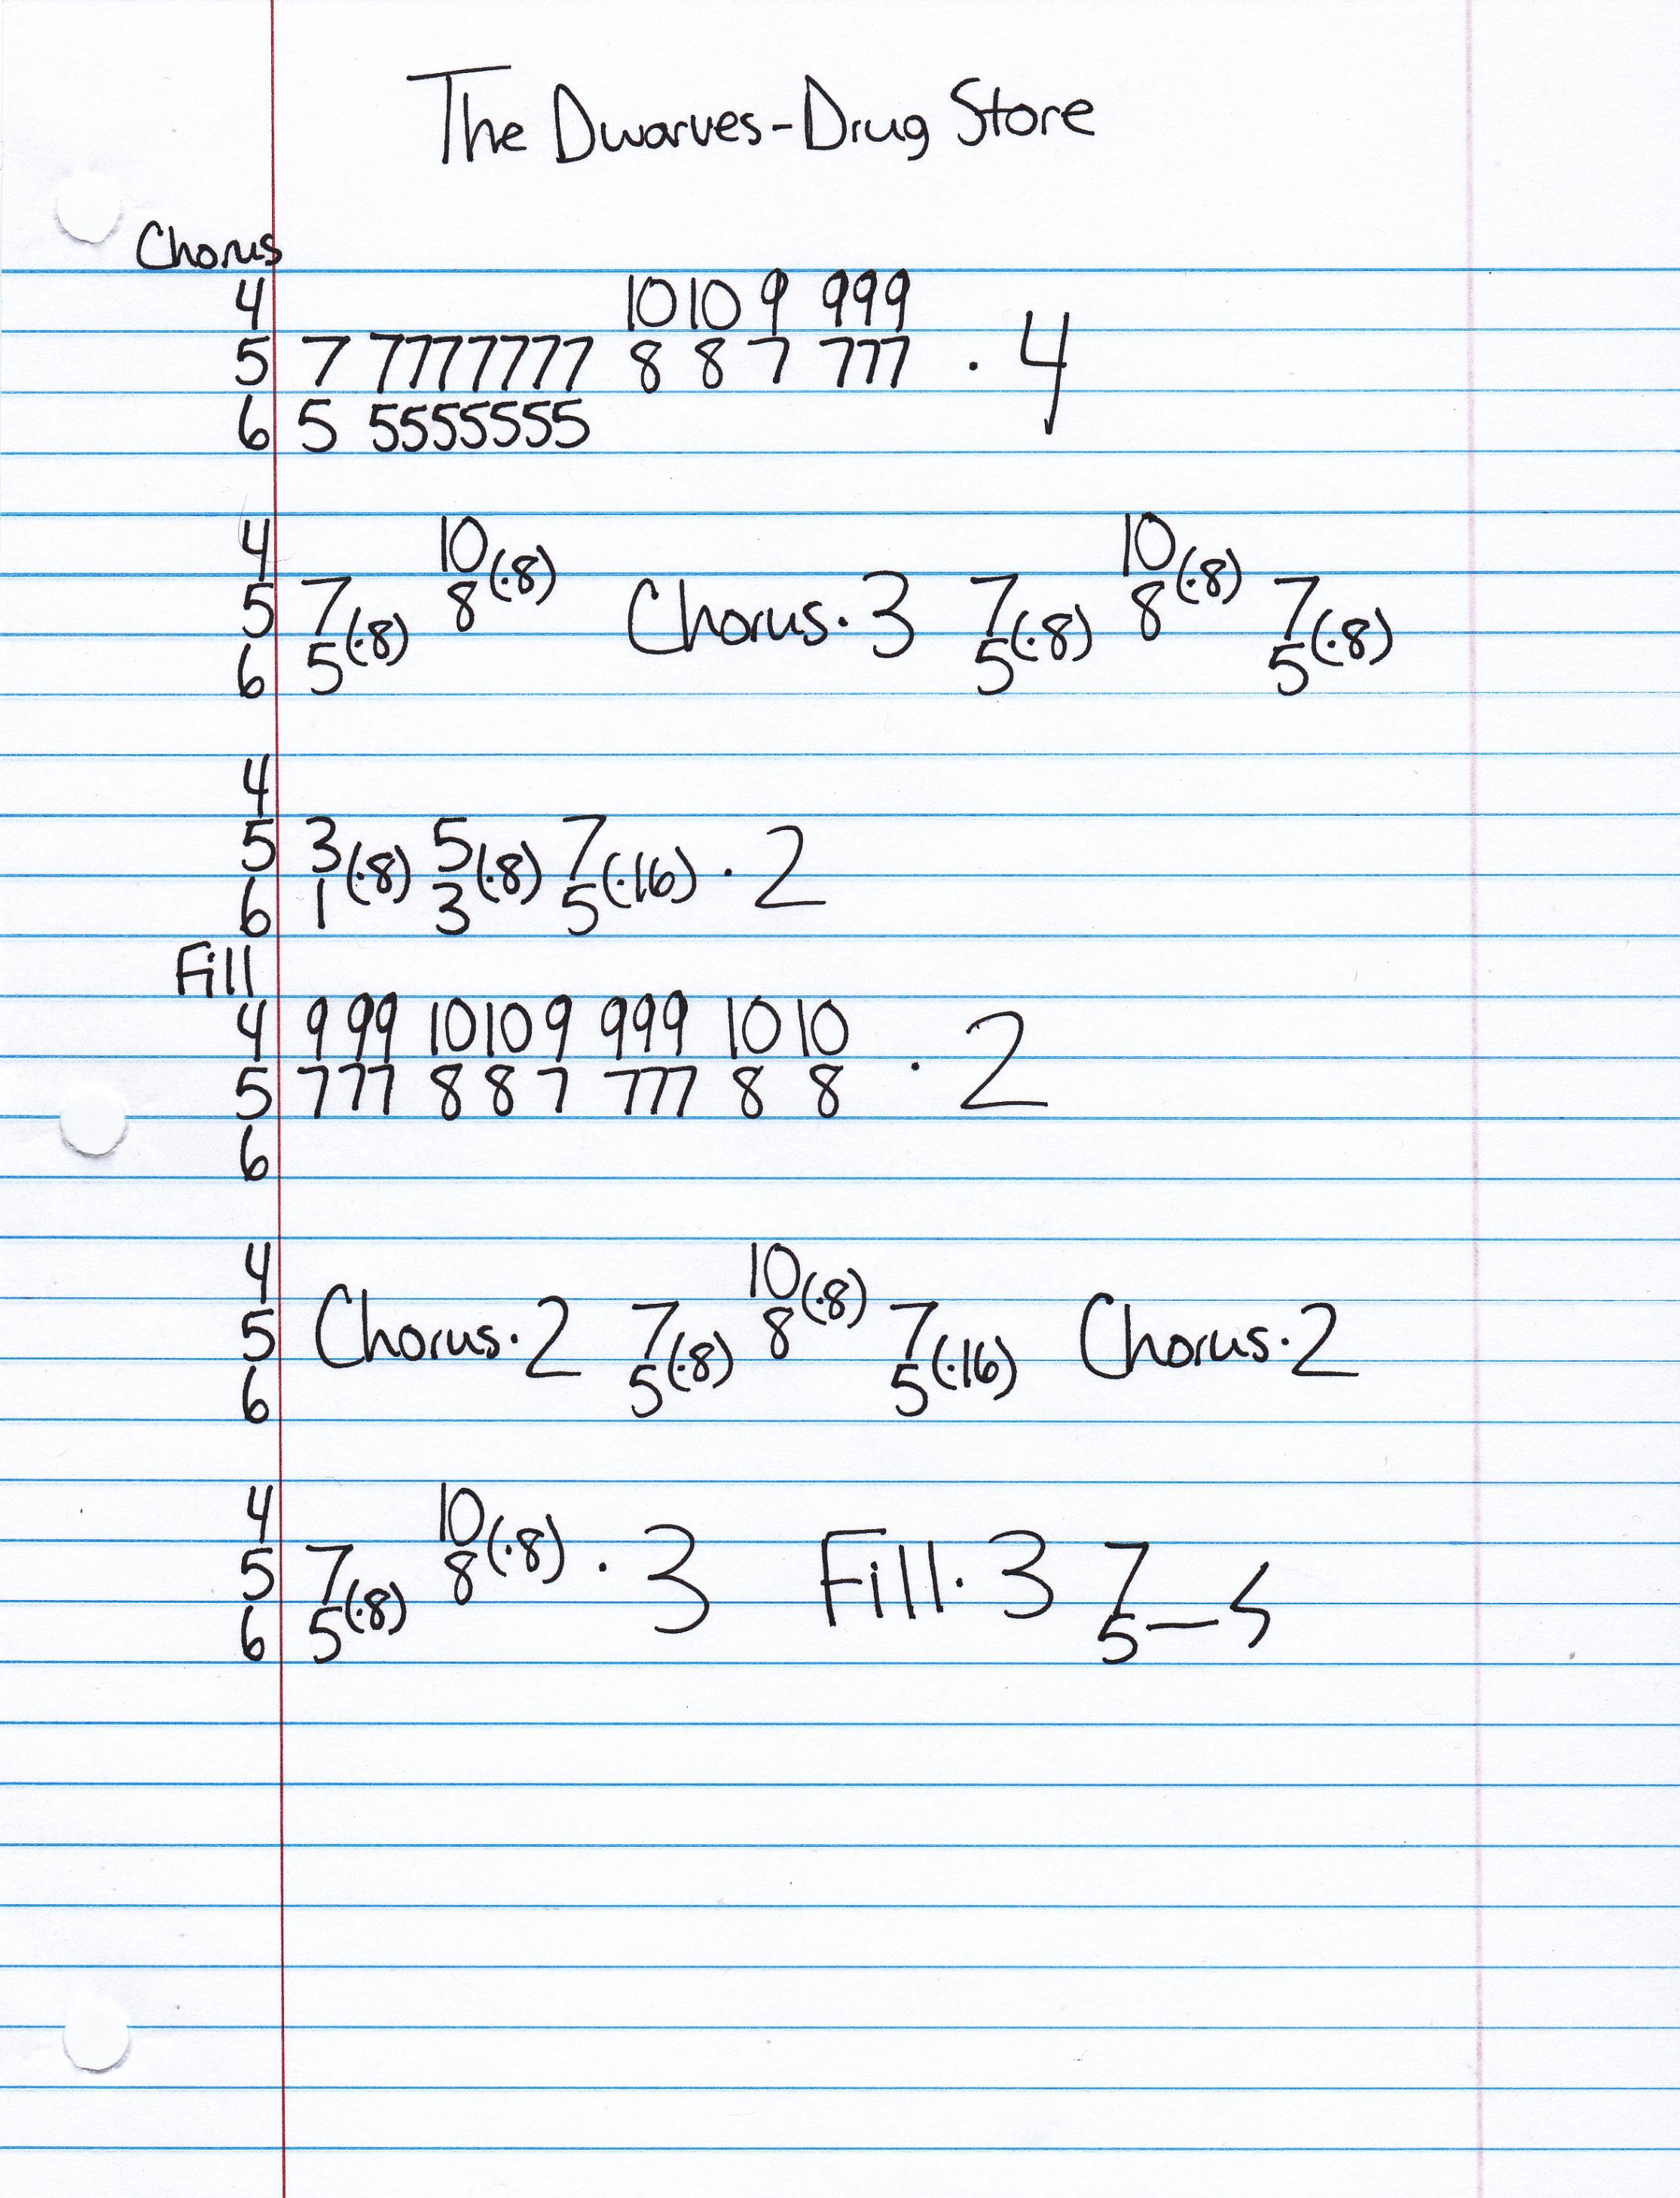 The Dwarves-Drug Store
Chorus
4 10 10 9 999
5 7 7777777 8 8 7 777 · 4
6 5 5555555
4 10(·8) 10(·8)
5 7(·8) 8 Chorus·3 7(·8) 8 7(·8)
6 5 5 5
4
5 3(·8) 5(·8) 7(·16) · 2
6 1 3 5
Fill
4 9 99 10 10 9 999 10 10
5 7 77 8 8 7 777 8 8 · 2
6
4 10(·8)
5 Chorus·2 7(·8) 8 7(·16) Chorus·2
6 5 5
4 10(·8)
5 7(·8) 8 · 3 Fill·3 7
6 5 5